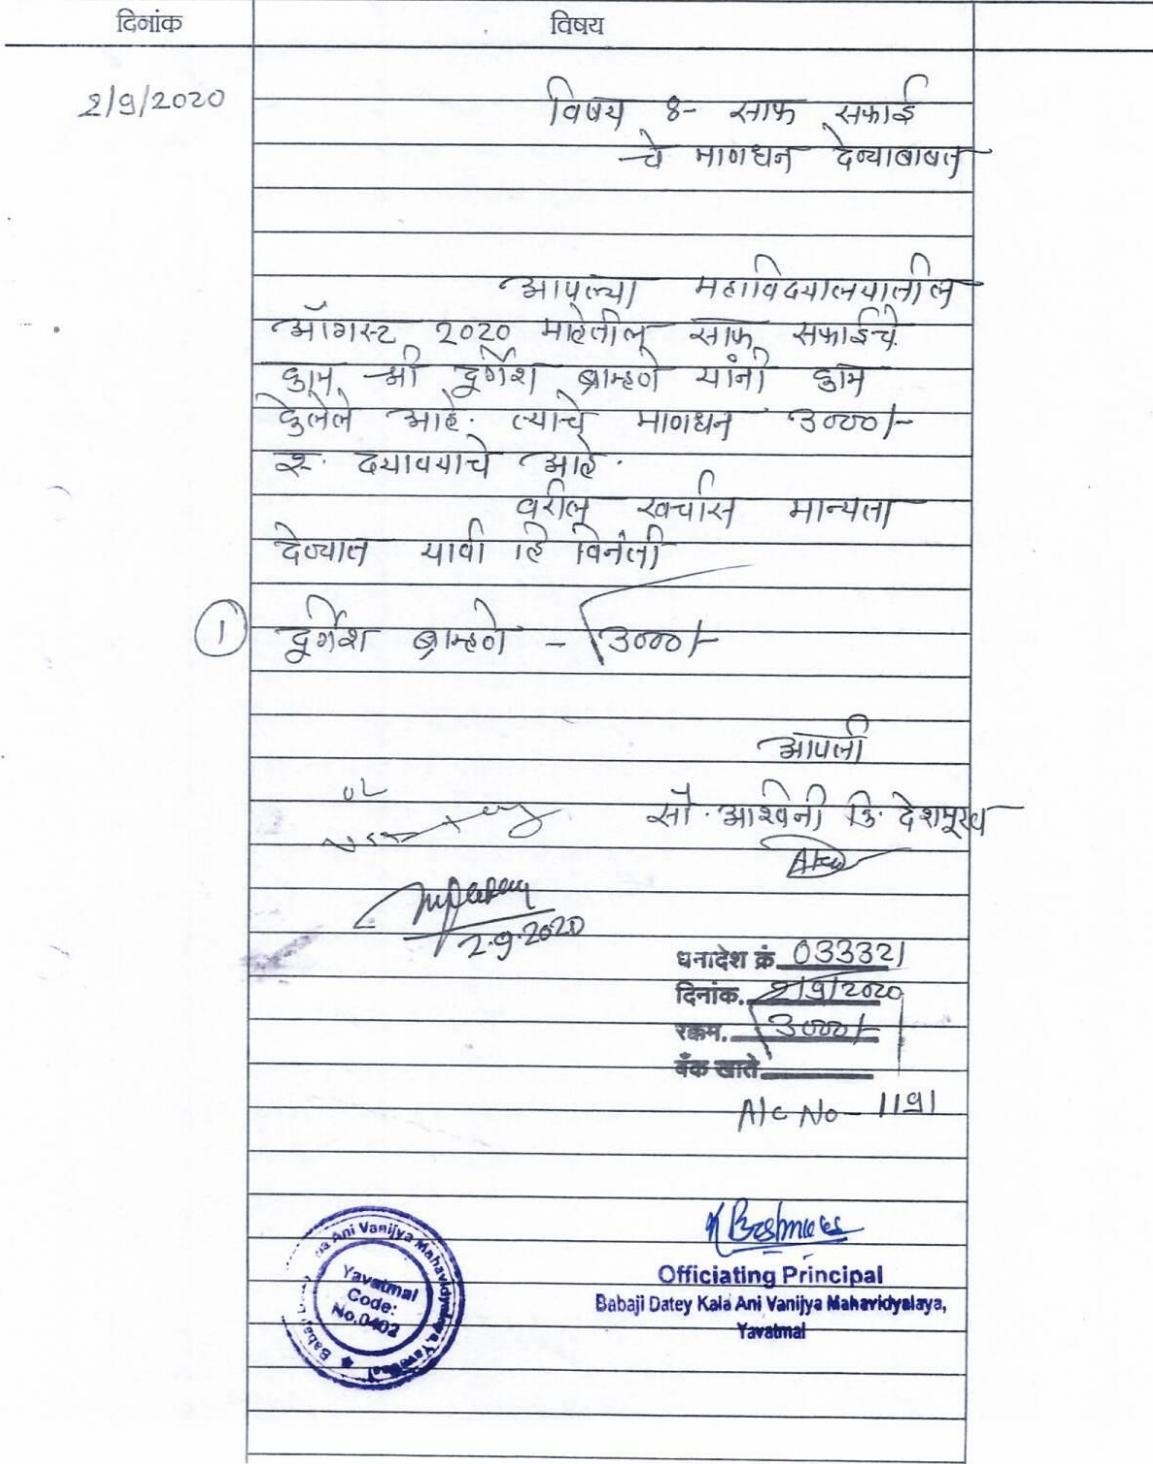 दिनांक विषय
2/9/2020
विषय :- साफ सफाई
चे मानधन देण्याबाबत
आपल्या महाविदयालयातील
ऑगस्ट 2020 माहेतील साफ सफाईचे
काम श्री दुर्गेश ब्राम्हणे यांनी काम
केलेले आहे. त्याचे मानधन 3000/-
रू. दयावयाचे आहे.
वरील खर्चास मान्यता
देण्यात यावी हि विनंती
1 दुर्गेश ब्राम्हणे - 3000/-
आपली
सौ. आश्विनी कि. देशमूख
2.9.2020
धनादेश क्रं 033321
दिनांक. 2/9/2020
रक्कम. 3000/-
बँक खाते
A/c No - 1191
Officiating Principal
Babaji Datey Kala Ani Vanijya Mahavidyalaya,
Yavatmal
Ani Vanijya Mahavidyalaya, Yavatmal
Babaji
Yavatmal
Code:
No.0402